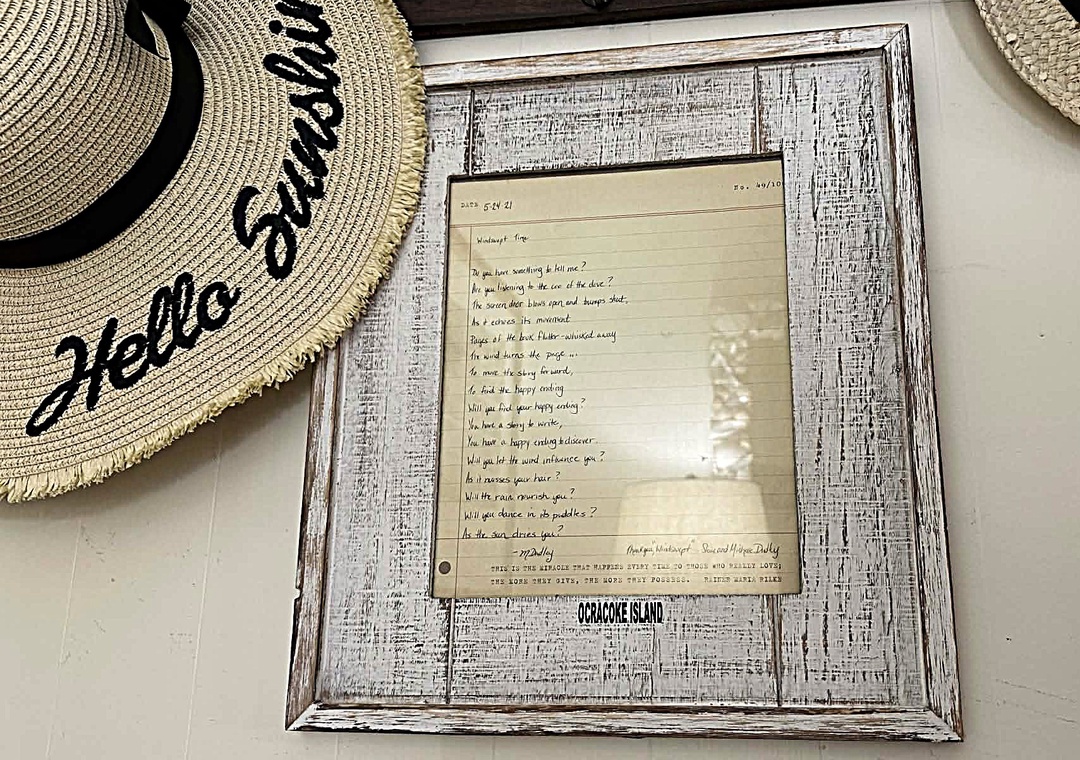 Hello Sunshin
No. 49/10
DATE 5-24-21
Windswept Time
Do you have something to tell me?
Are you listening to the coo of the dove?
The screen door blows open and bumps shut,
As it echoes its movement
Pages of the book flutter-whisked away
The wind turns the page...
To move the story forward,
To find the happy ending
Will you find your happy ending?
You have a story to write,
You have a happy ending to discover.
Will you let the wind influence you?
As it musses your hair?
Will the rain nourish you?
Will you dance in its puddles?
As the sun dries you?
-M Dudley
Thank you, "Windswept" Steve and Dudley
THIS IS THE MIRACLE THAT HAPPENS EVERY TIME TO THOSE WHO REALLY LOVE;
THE MORE THEY GIVE, THE MORE THEY POSSESS. RAINER MARIA RILKE
OCRACOKE ISLAND